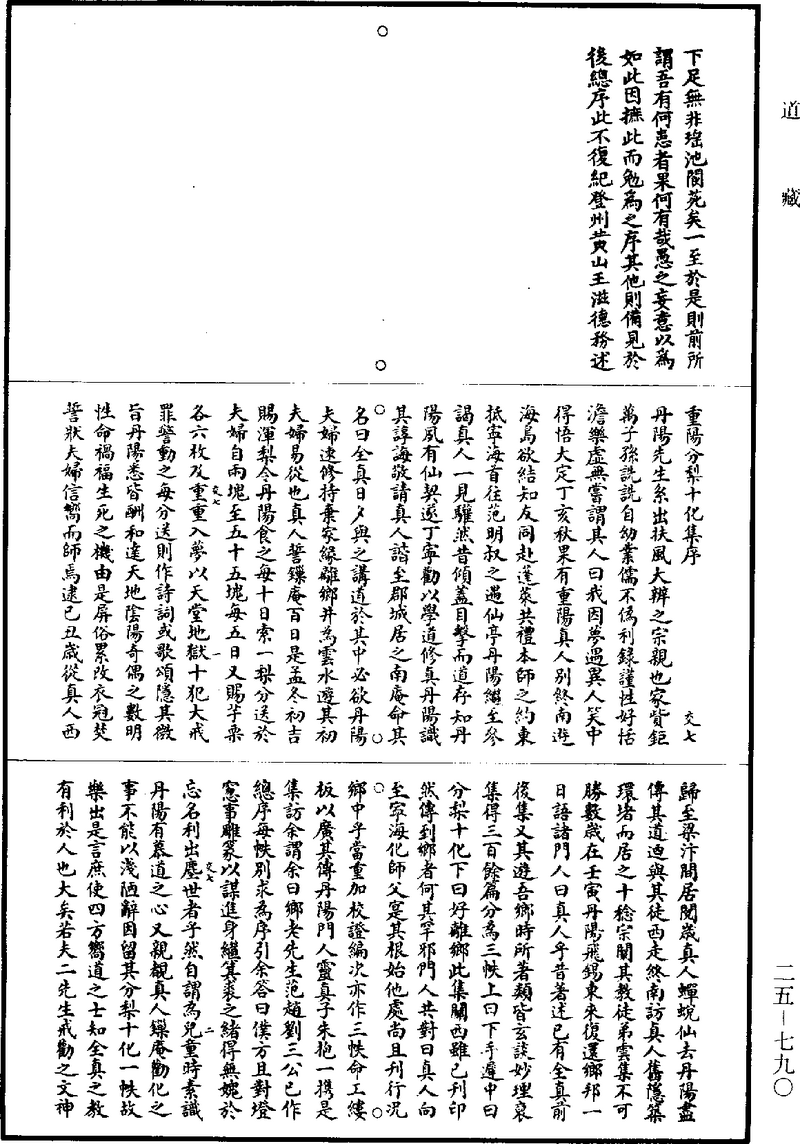 道藏
下足無非瑤池閬苑矣一至於是則前所
謂吾有何患者果何有哉愚之妄意以為
如此因摭此而勉為之序其他則備見於
後總序此不復紀登州黃山王滋德務述
重陽分梨十化集序
交七
丹陽先生系出扶風大辨之宗親也家貲鉅
萬子孫詵詵自幼業儒不偽利錄謹性好恬
澹樂虛無嘗謂其人曰我因夢遇異人笑中
得悟大定丁亥秋果有重陽真人別終南遊
海島欲結知友同赴蓬萊共禮本師之約東
抵寧海首往范明叔之遇仙亭丹陽繼至參
謁真人一見驩然昔傾蓋目擊而道存知丹
陽夙有仙契遂丁寧勸以學道修真丹陽識
其諄誨敬請真人詣至郡城居之南庵命其
名曰全真日夕與之講道於其中必欲丹陽
夫婦速修持棄家緣離鄉井為雲水遊其初
夫婦易從也真人誓鏁庵百日是孟冬初吉
賜渾梨令丹陽食之每十日索一梨分送於
夫婦自兩塊至五十五塊每五日又賜芋栗
各六枚及重重入夢以天堂地獄十犯大戒
罪警動之每分送則作詩詞或歌頌隱其微
旨丹陽悉皆酬和達天地陰陽奇偶之數明
性命禍福生死之機由是屏俗累改衣冠焚
誓狀夫婦信嚮而師焉逮己丑歲從真人西
交七
一
歸至梁汴間居閱歲真人蟬蛻仙去丹陽盡
傳其道迺與其徒西走終南訪真人舊隱築
環堵而居之十稔宗闡其教徒弟雲集不可
勝數歲在壬寅丹陽飛錫東來復還鄉邦一
日語諸門人曰真人乎昔著述已有全真前
後集又其遊吾鄉時所著類皆玄談妙理裒
集得三百餘篇分為三帙上曰下手遲中曰
分梨十化下曰好離鄉此集關西雖已刊印
然傳到鄉者何其罕邪門人共對曰真人向
至寧海化師父寔其根始他處尚且刊行況
鄉中乎當重加校證編次亦作三帙命工鏤
板以廣其傳丹陽門人靈真子朱抱一携是
集訪余謂余曰鄉老先生范趙劉三公已作
總序每帙別求為序引余答曰僕方且對燈
窻事雕篆以謀進身繼箕裘之緒得無媿於
忘名利出塵世者乎然自謂為兒童時素識
丹陽有慕道之心又親覩真人鏁庵勸化之
事不能以淺陋辭因留其分梨十化一帙故
樂出是言庶使四方嚮道之士知全真之教
有利於人也大矣若夫二先生戒勸之文神
交七
二
二五－七九〇